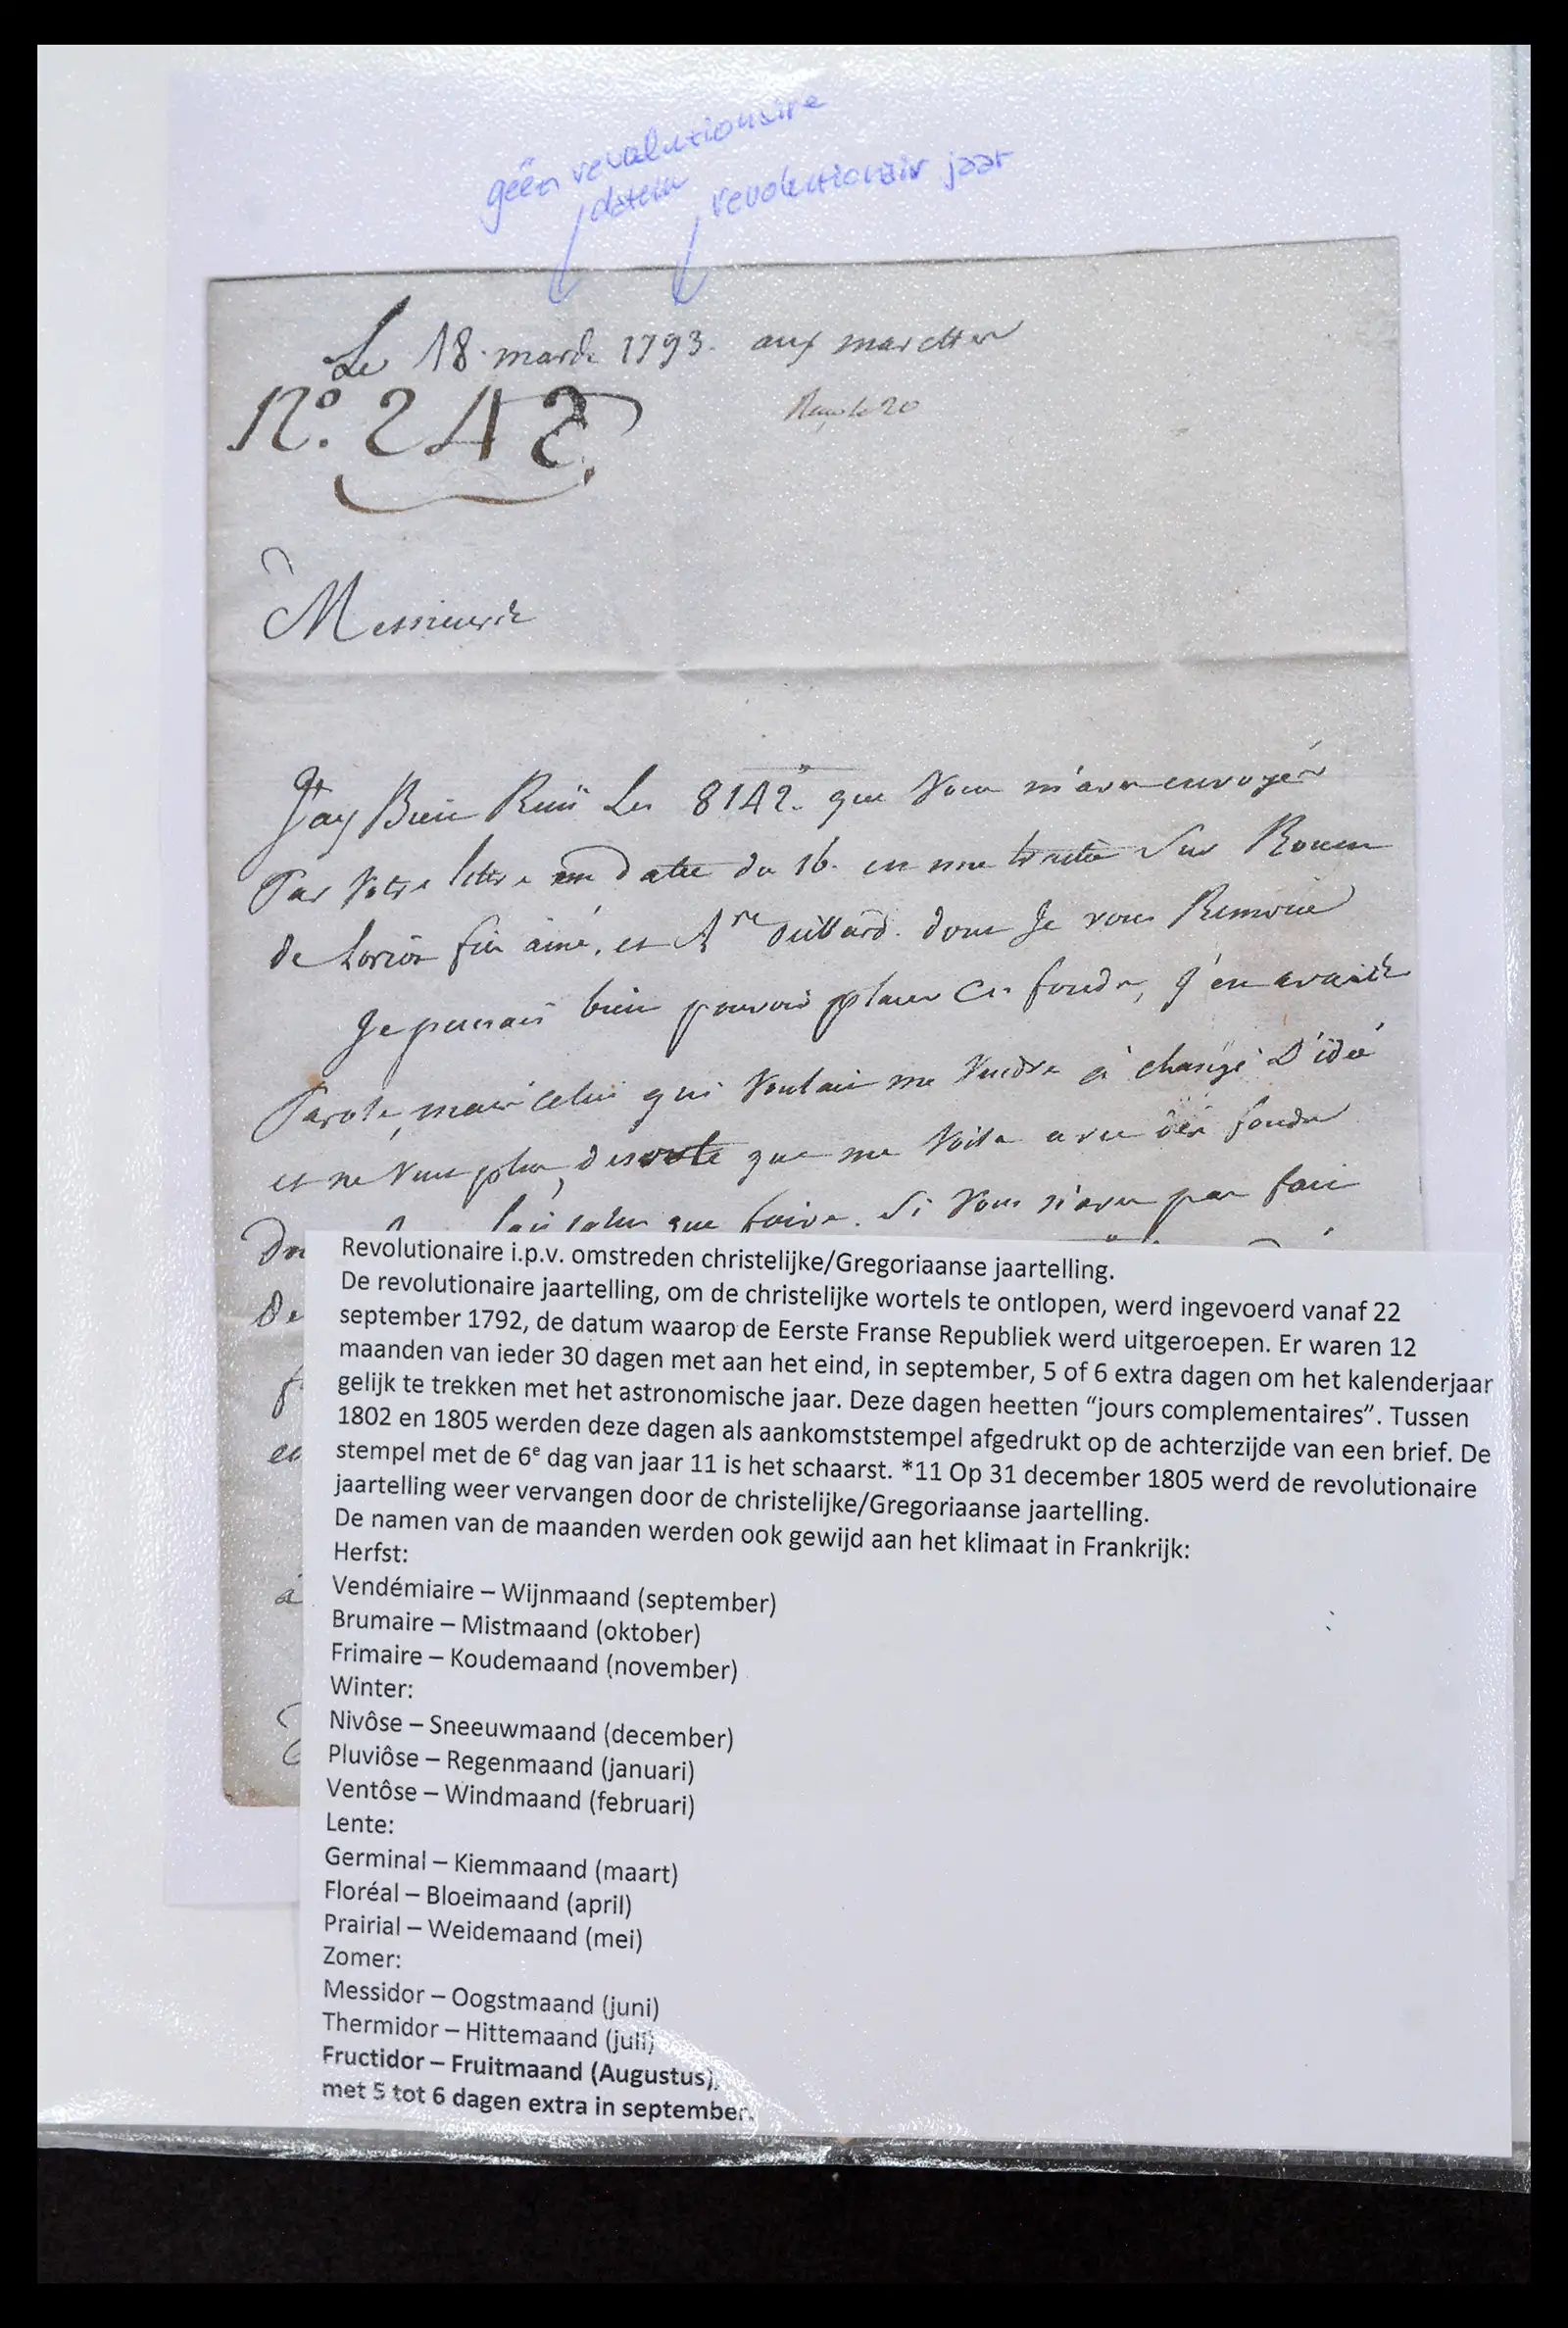 geën revolutionaire
datum revolutionair jaar
Le 18 mars 1793. aux marettes
N°. 242
Reçu le 20
Messieurs
J'ay Bien Recü Les 8142. que Vous m'avez envoyés
Par Votre lettre en Date du 16. en une traite Sur Rouen
de Loriot fils ainé, et dont Je vous Remercie
Je pensais bien pouvoir placer Ces fonds, J'en avais
Parole, mais celui qui Voulait me Vendre à changé D'idée
et ne Veut plus, desorte que me Voila avec des fonds
que faire. Si Vous n'avez pas fait
De
à
Revolutionaire i.p.v. omstreden christelijke/Gregoriaanse jaartelling.
De revolutionaire jaartelling, om de christelijke wortels te ontlopen, werd ingevoerd vanaf 22
september 1792, de datum waarop de Eerste Franse Republiek werd uitgeroepen. Er waren 12
maanden van ieder 30 dagen met aan het eind, in september, 5 of 6 extra dagen om het kalenderjaar
gelijk te trekken met het astronomische jaar. Deze dagen heetten “jours complementaires”. Tussen
1802 en 1805 werden deze dagen als aankomststempel afgedrukt op de achterzijde van een brief. De
stempel met de 6e dag van jaar 11 is het schaarst. *11 Op 31 december 1805 werd de revolutionaire
jaartelling weer vervangen door de christelijke/Gregoriaanse jaartelling.
De namen van de maanden werden ook gewijd aan het klimaat in Frankrijk:
Herfst:
Vendémiaire – Wijnmaand (september)
Brumaire – Mistmaand (oktober)
Frimaire – Koudemaand (november)
Winter:
Nivôse – Sneeuwmaand (december)
Pluviôse – Regenmaand (januari)
Ventôse – Windmaand (februari)
Lente:
Germinal – Kiemmaand (maart)
Floréal – Bloeimaand (april)
Prairial – Weidemaand (mei)
Zomer:
Messidor – Oogstmaand (juni)
Thermidor – Hittemaand (juli)
Fructidor – Fruitmaand (Augustus),
met 5 tot 6 dagen extra in september.